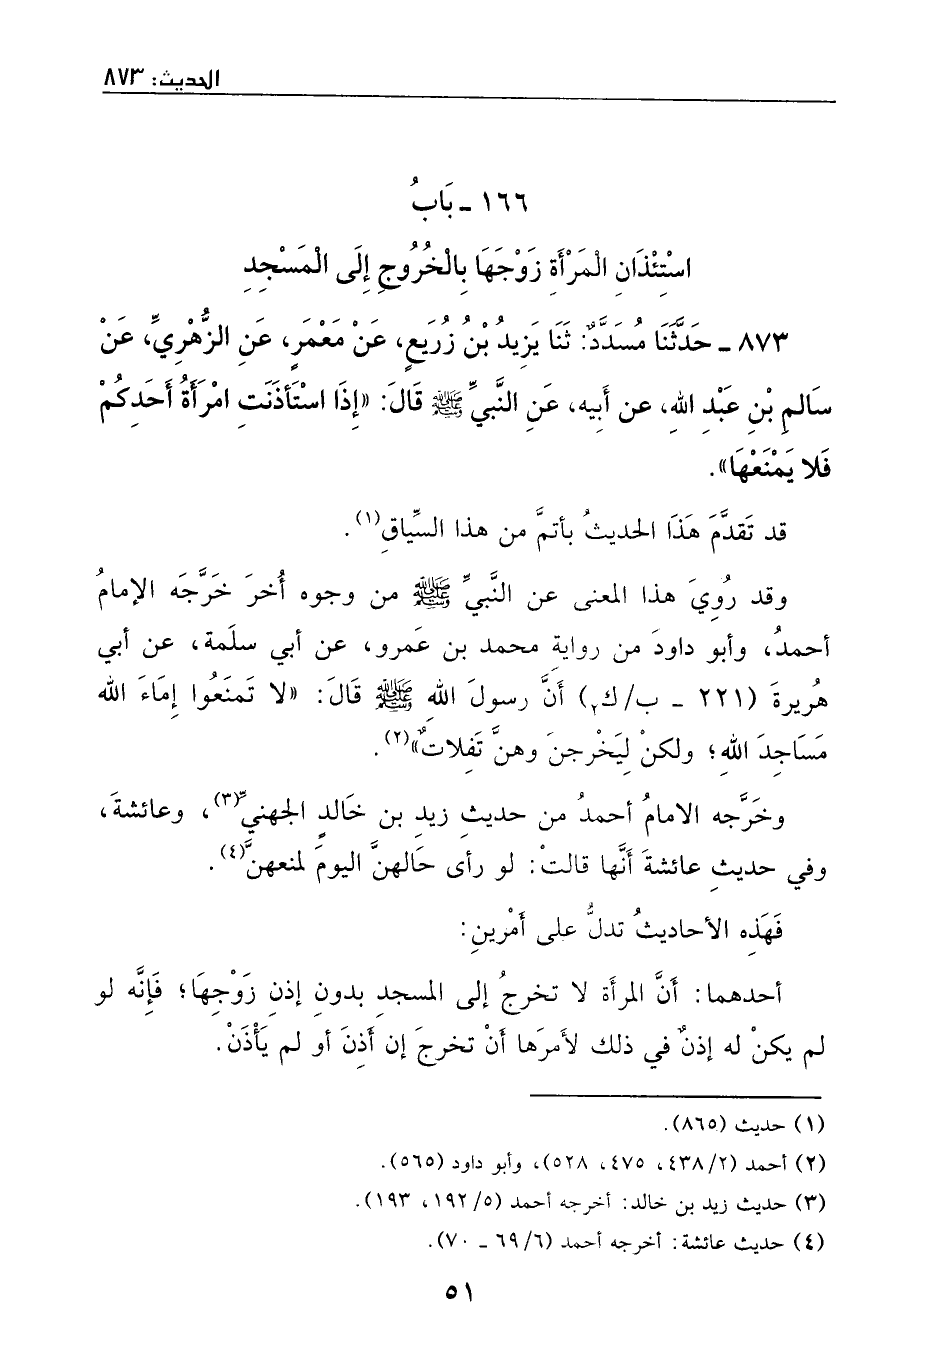 الحديث: ٨٧٣
١٦٦ - بَابُ
اسْتِئْذَانِ الْمَرْأَةِ زَوْجَهَا بِالْخُرُوجِ إِلَى الْمَسْجِدِ
٨٧٣ - حَدَّثَنَا مُسَدَّدٌ: ثَنَا يَزِيدُ بْنُ زُرَيعٍ، عَنْ مَعْمَرٍ، عَنِ الزُّهْرِيِّ، عَنْ
سَالمِ بْنِ عَبْدِ اللهِ، عن أَبيه، عَنِ النَّبيِّ ﷺ قَالَ: «إِذَا اسْتَأْذَنَتِ امْرَأَةُ أَحَدِكُمْ
فَلا يَمْنَعْهَا».
قد تَقدَّمَ هَذَا الحديثُ بأتمَّ من هذا السِّياقِ(١).
وقد رُويَ هذا المعنى عن النَّبيِّ ﷺ من وجوه أُخرَ خَرَّجَه الإمامُ
أحمدُ، وأبو داودَ من روايةِ محمد بن عَمرو، عن أبي سلَمة، عن أبي
هُريرةَ (٢٢١ - ب/ك٢) أَنَّ رسولَ اللهِ ﷺ قَالَ: «لا تَمنَعُوا إِمَاءَ الله
مَسَاجِدَ اللهِ؛ ولكنْ لِيَخْرجنَ وهنَّ تَفِلاتٌ»(٢).
وخَرَّجه الامامُ أحمدُ من حديثِ زيدِ بن خَالدٍ الجهنيِّ(٣)، وعائشةَ،
وفي حديثِ عائشةَ أَنَّها قالتْ: لو رأى حَالهنَّ اليومَ لمنعهنَّ(٤).
فَهَذِه الأحاديثُ تدلُّ على أَمْرينِ:
أحدهما: أَنَّ المرأة لا تخرجُ إلى المسجدِ بدونِ إذنِ زَوْجِهَا؛ فَإِنَّه لو
لم يكنْ له إذنٌ في ذلك لأمرَها أَنْ تخرجَ إن أَذِنَ أو لم يَأْذَنْ.
(١) حديث (٨٦٥).
(٢) أحمد (٤٣٨/٢، ٤٧٥، ٥٢٨)، وأبو داود (٥٦٥).
(٣) حديث زيد بن خالد: أخرجه أحمد (١٩٢/٥، ١٩٣).
(٤) حديث عائشة: أخرجه أحمد (٦٩/٦ - ٧٠).
٥١